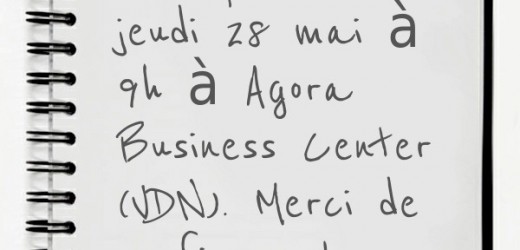 jeudi 28 mai à
9h à Agora
Business Center
(VDN). Merci de